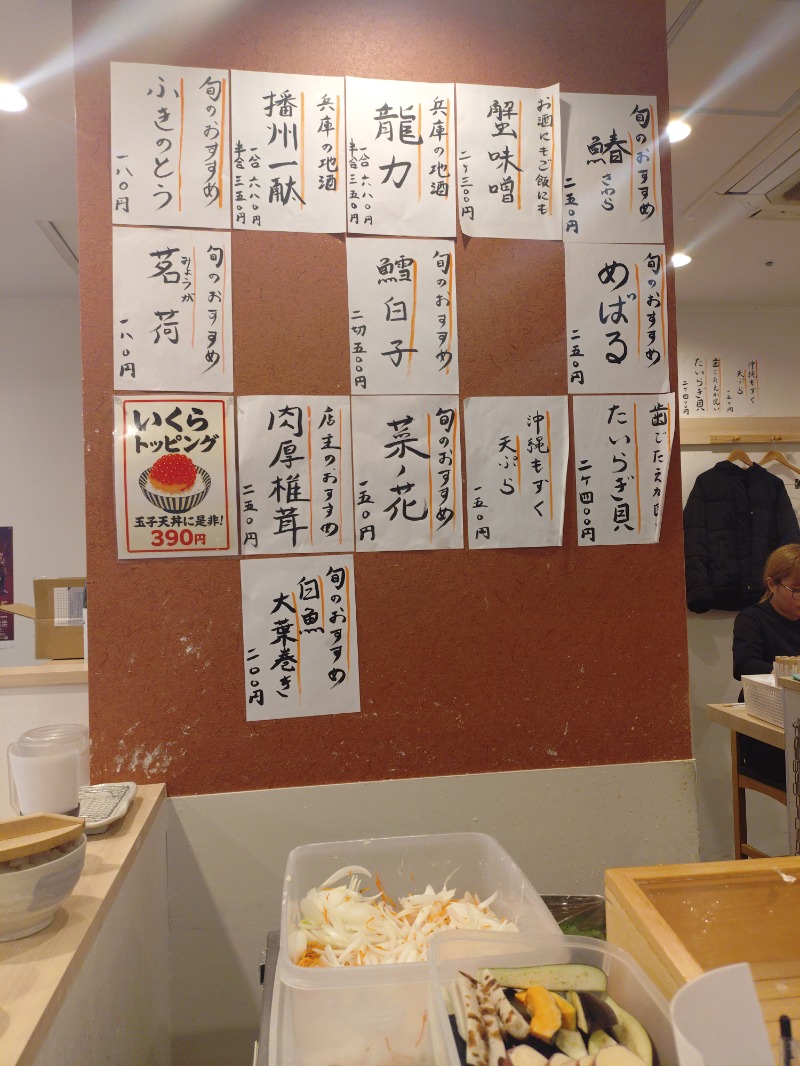 旬のおすすめ
鰆
さわら
二五〇円
お酒にもご飯にも
蟹味噌
二ケ三〇〇円
兵庫の地酒
龍力
一合 六八〇円
半合 三五〇円
兵庫の地酒
播州一献
一合 六八〇円
半合 三五〇円
旬のおすすめ
ふきのとう
一八〇円
旬のおすすめ
めばる
二五〇円
旬のおすすめ
鱈白子
二切 五〇〇円
旬のおすすめ
みょうが
茗荷
一八〇円
歯ごたえが良い
たいらぎ貝
二ケ 四〇〇円
沖縄もずく
天ぷら
一五〇円
旬のおすすめ
菜ノ花
一五〇円
店主のおすすめ
肉厚椎茸
二五〇円
いくら
トッピング
玉子天丼に是非!
390円
旬のおすすめ
白魚
大葉巻き
二〇〇円
沖縄もずく
天ぷら
一五〇円
歯ごたえが良い
たいらぎ貝
二ケ四〇〇円